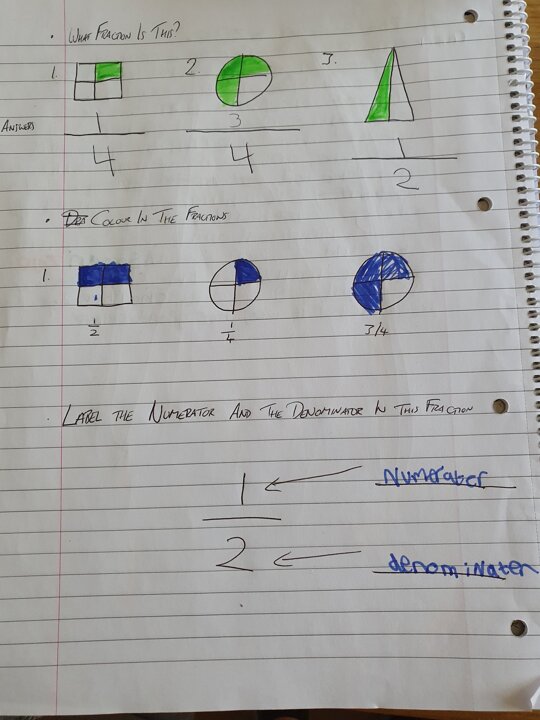 · What Fraction Is This?
1. 2. 3.
Answers 1/4 3/4 1/2
· Colour In The Fractions
1.
1/2 1/4 3/4
· Label The Numerator And The Denominator In This Fraction
1 Numerater
2 denominater